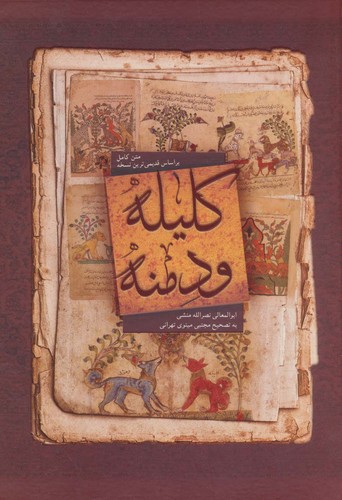 متن کامل
براساس قدیمی‌ترین نسخه
کلیله
ودمنه
ابوالمعالی نصرالله منشی
به تصحیح مجتبی مینوی تهرانی